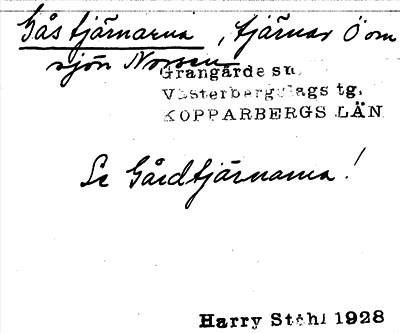 Gåstjärnarna, tjärnar Ö om
sjön Norsen
Grangärde sn.
Västerbergslags tg.
KOPPARBERGS LÄN
Se Gårdtjärnarna!
Harry Ståhl 1928